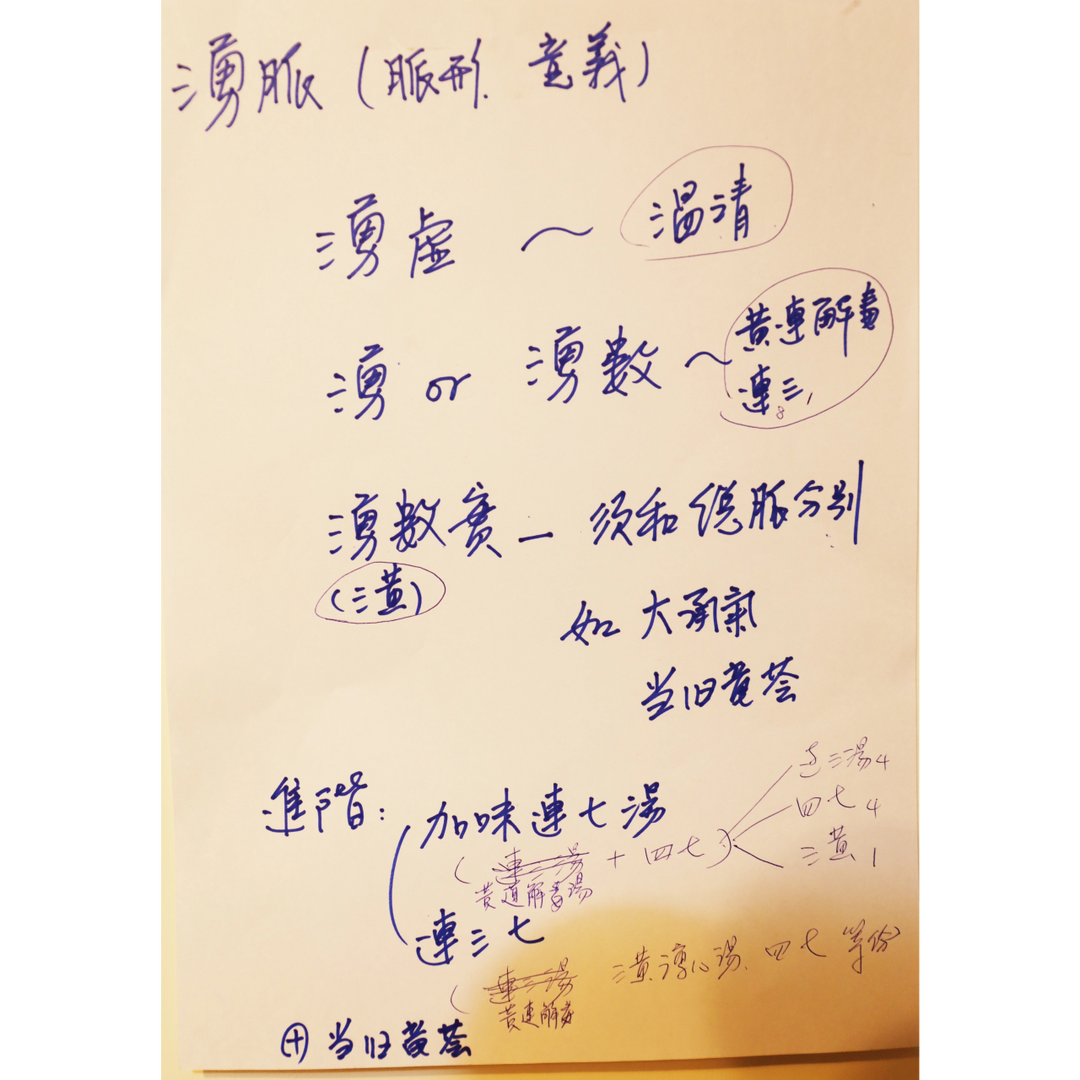 湧脈（脈形. 意義）
湧虛 ～ 溫清
湧 or 湧數 ～ 黃連解毒
連三
8 1
湧數實 — 須和緩脈分別
（三黃）
如 大承氣
当归黄荟
進階： 加味連七湯
（ 連三湯 + 四七 ）
黃連解毒湯
連三湯 4
四七 4
三黃 1
連三七
（ 連三湯 三黃瀉心湯、四七 等份
黃連解毒
⊕ 当归黄荟